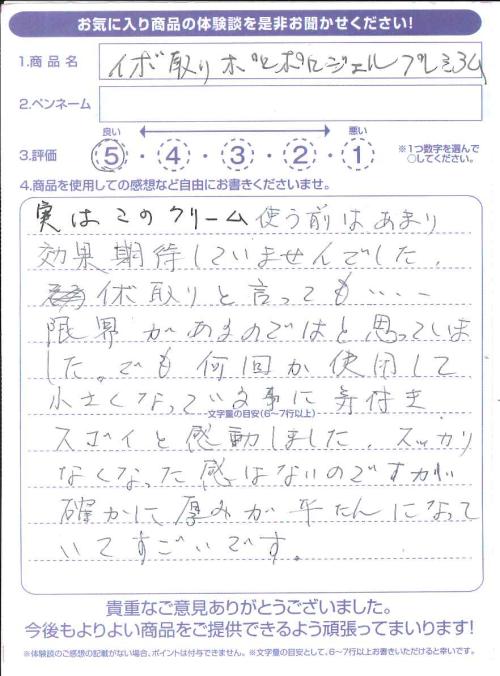 お気に入り商品の体験談を是非お聞かせください!
1.商品名 イボ取りポロポロジェルプレミアム
2.ペンネーム
良い 悪い
3.評価 5・4・3・2・1 ※1つ数字を選んで○してください。
4.商品を使用しての感想など自由にお書きくださいませ。
実はこのクリーム使う前はあまり
効果期待していませんでした.
イボ取りと言っても・・・・
限界があるのではと思っていま
した。でも何回か使用して
小さくなっている事に気付き
文字量の目安(6~7行以上)
スゴイと感動しました.スッカリ
なくなった感はないのですが
確かに厚みが平たんになって
いてすごいです.
貴重なご意見ありがとうございました。
今後もよりよい商品をご提供できるよう頑張ってまいります!
※体験談のご感想の記載がない場合、ポイントは付与できません。※文字量の目安として、6~7行以上お書きいただけると幸いです。